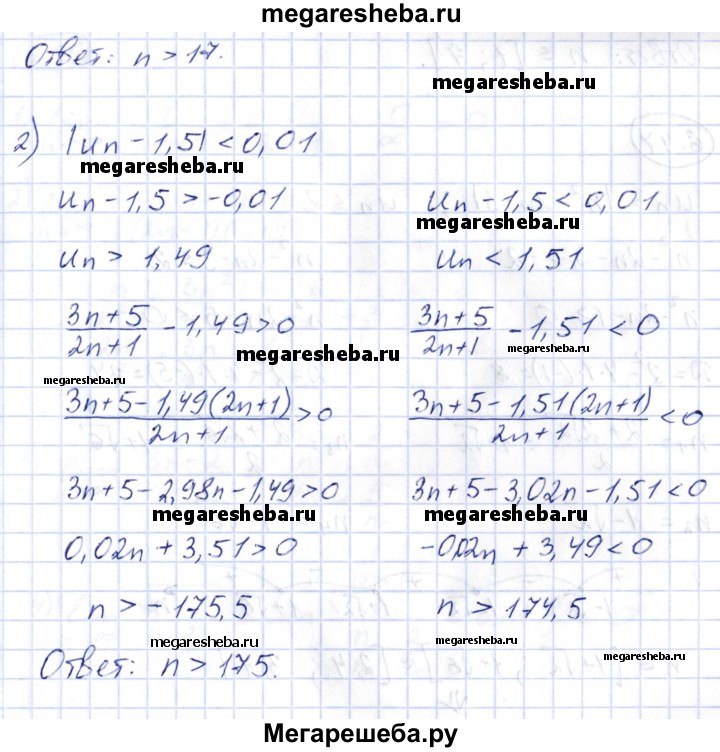 megaresheba.ru
Ответ: n > 17.
megaresheba.ru
2) |Un - 1,5| < 0,01
megaresheba.ru
Un - 1,5 > -0,01 Un - 1,5 < 0,01
megaresheba.ru
Un > 1,49 Un < 1,51
(3n+5)/(2n+1) - 1,49 > 0 (3n+5)/(2n+1) - 1,51 < 0
megaresheba.ru megaresheba.ru
megaresheba.ru
(3n+5-1,49(2n+1))/(2n+1) > 0 (3n+5-1,51(2n+1))/(2n+1) < 0
3n+5-2,98n-1,49>0 3n+5-3,02n-1,51<0
megaresheba.ru megaresheba.ru
0,02n + 3,51 > 0 -0,02n + 3,49 < 0
n > -175,5 n > 174,5
megaresheba.ru megaresheba.ru
Ответ: n > 175.
Мегарешеба.ру